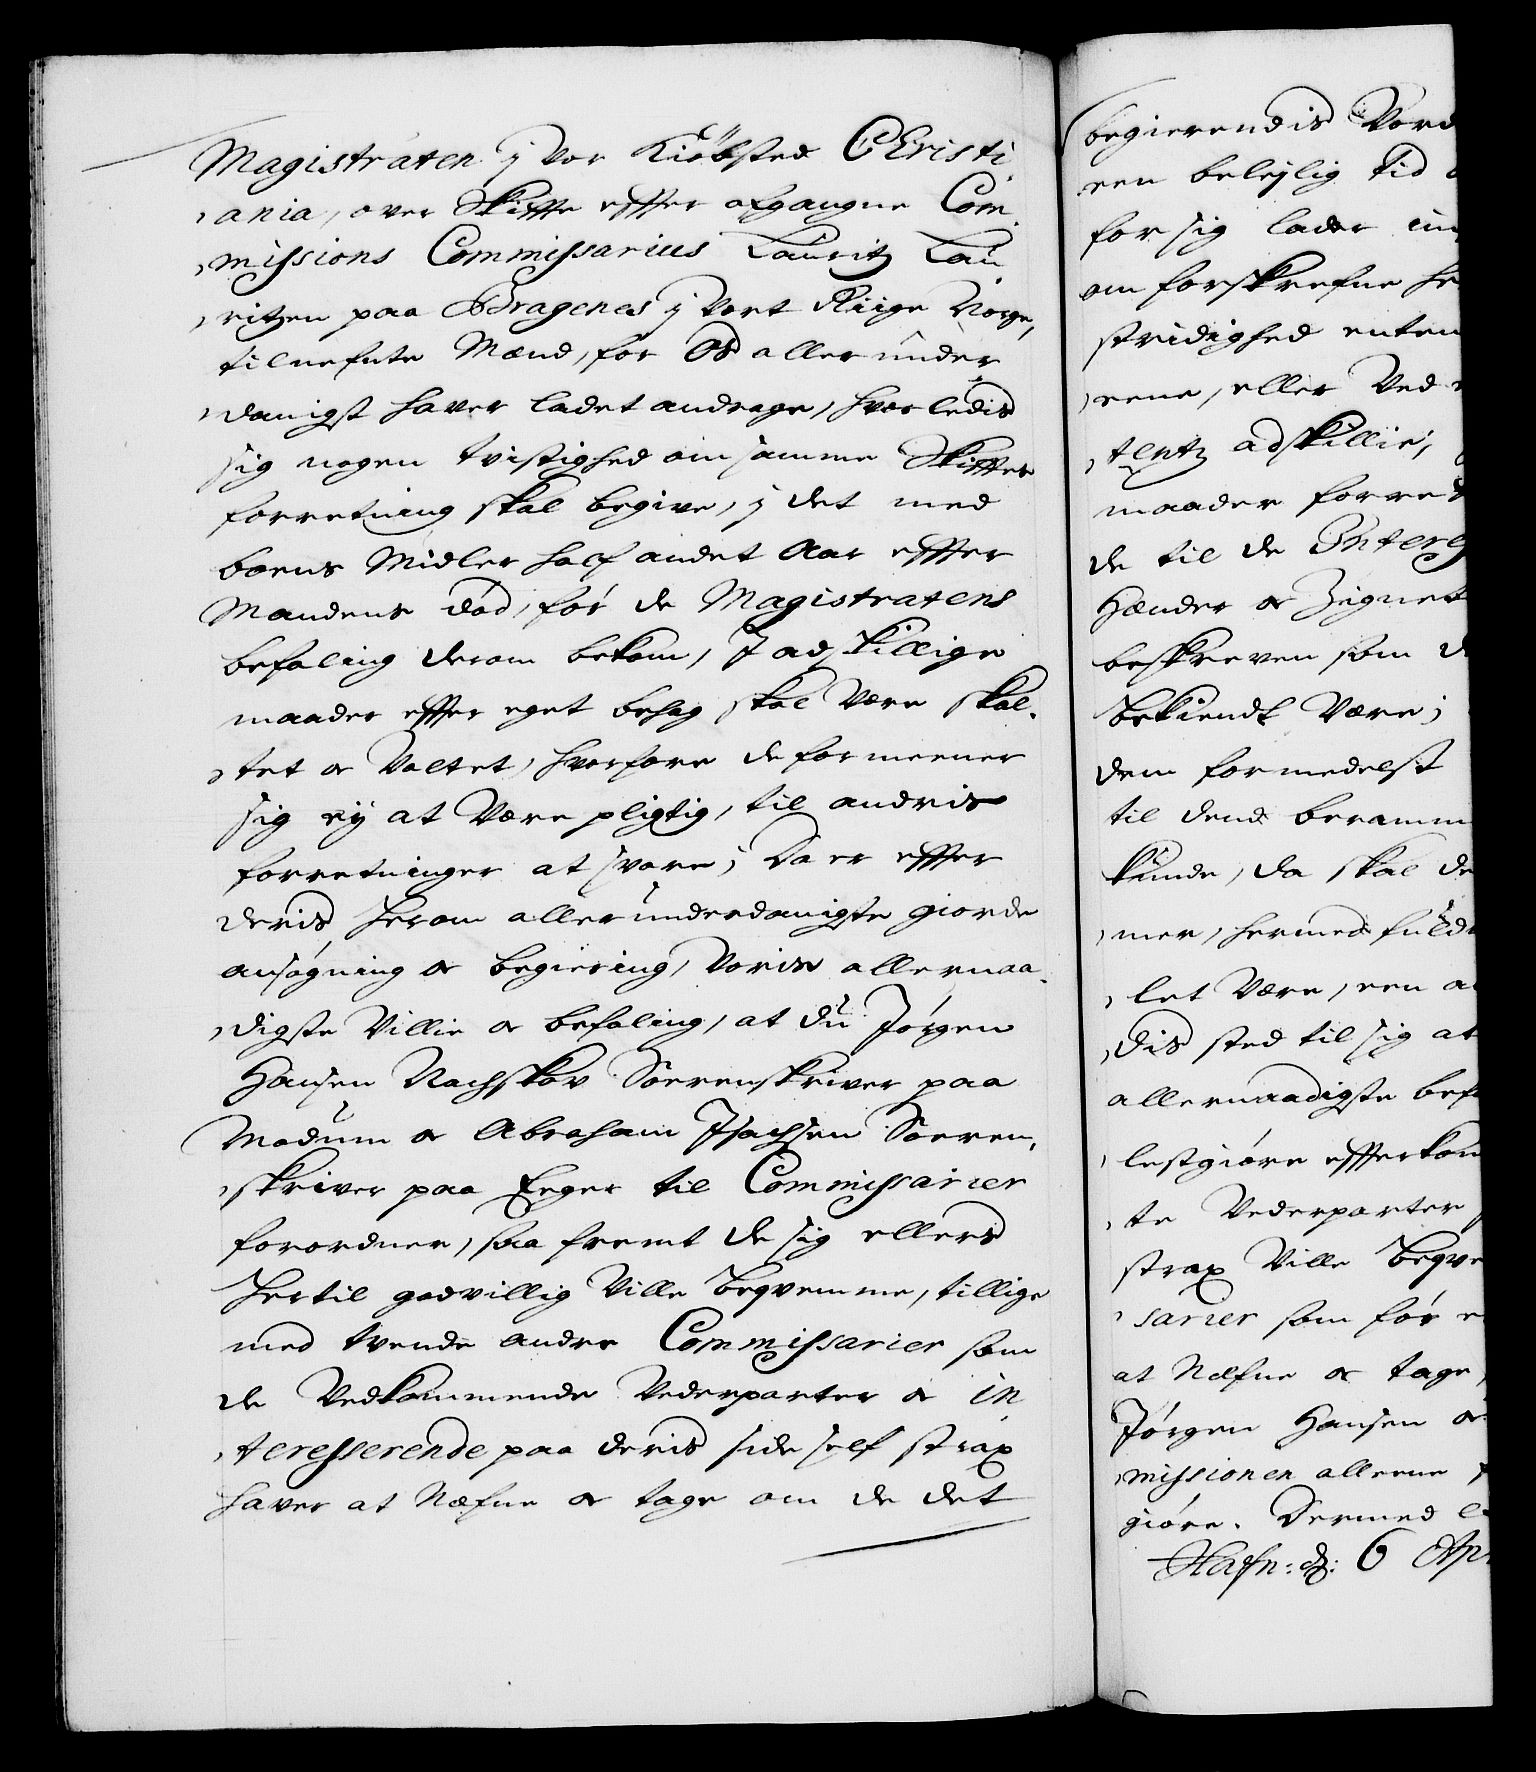 Magistraten j vor Kiöbsted Christi-
ania, over Skiffte effter afgangne Com-
missions Commissarius Lauritz Lau-
ritzen paa Bragenes j Vort Riige Norge,
tilnefnte Mænd, for Os allerunder-
danigst hafver ladet andrage, hvorledis
sig nogen tvistighed om samme Skifftes
forretning skal begive, j det med
boens Midler half andet Aar effter
Mandens død, før de Magistratens
befaling derom bekom, J adskillige
maader effter eget behag skal være skal-
tet og Valtet, hvorfore de formeener
sig ey at Være pligtig, til andris
forretninger at svare; Da er effter
deris herom allerunderdanigste giorde
ansøgning og begiering, Voris allernaa-
digste Villie og befaling, at du Jørgen
Hansen Nachskov Sorenskriver paa
Modum og Abraham Isachsen Soren-
skriver paa Eeger til Commissarier
forordner, saa fremt de sig ellers
hertil godvillig Ville beqvemme, tillige
med tvende andre Commissarier som
de Vedkommende Vederparter og in-
teresserende paa deris side self strax
hafver at Næfne og tage om de det
begierendis Vord
een beleylig tid
for sig lader in
om forskrefne
stridighed enten
eene, eller Ved
tentz adskillie,
maader forret
de til de Interes
Hænder og Zignet
beskreven som
bekiendt Være;
dem formedelst
til dend beramm
kunde, da skal de
mer, hermed fuld
let Være, een a
dis sted til sig at
allernaadigste bef
lestgiøre effterkom
te Vederparter
strax Ville beqve
sarier som før
at Næfne og tage,
Jørgen Hansen og
missionen alleene
giøre. Dermed
Hafn: d: 6 Ap